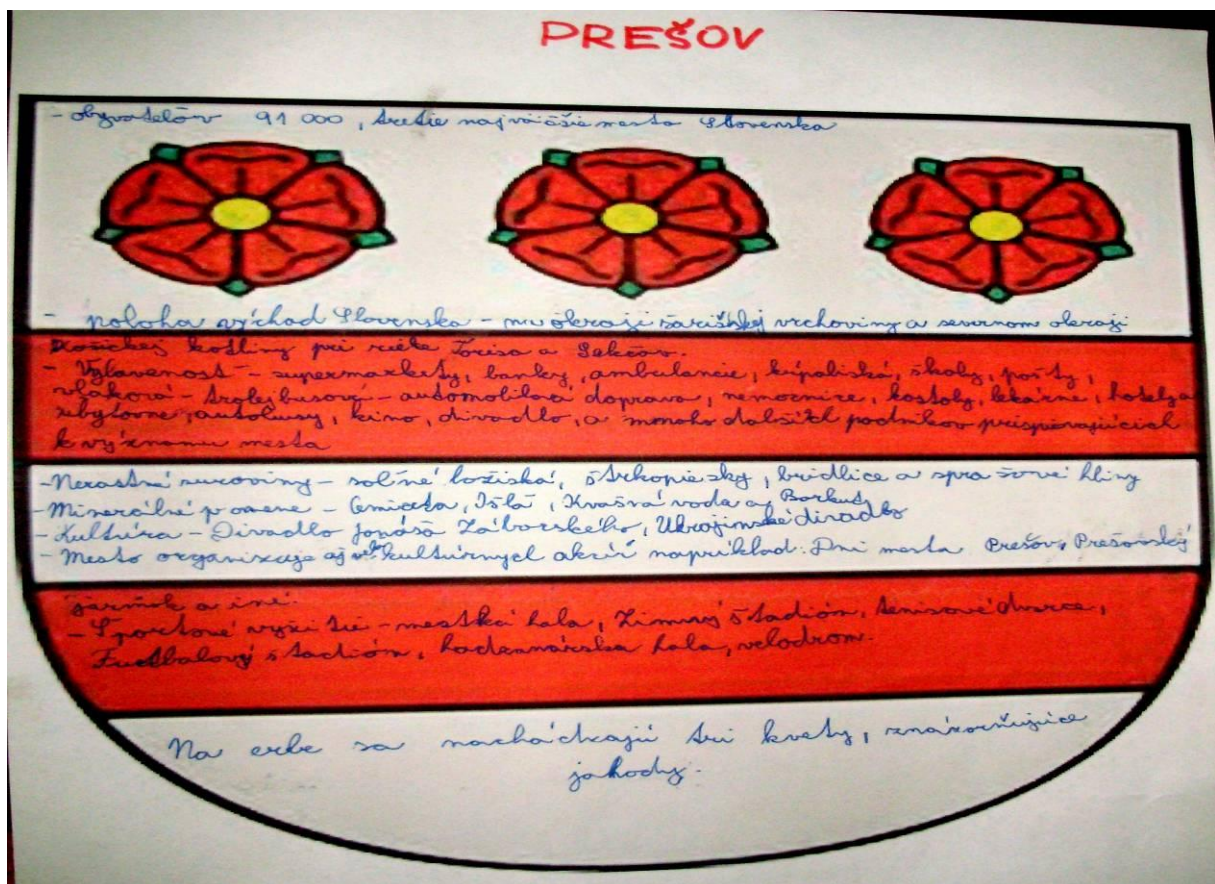 PREŠOV
- obyvatelov 91 000, tretie najväčšie mesto Slovenska
- poloha východ Slovenska - na okraji Šarišskej vrchoviny a severnom okraji
Košickej kotliny pri rieke Torisa a Sekčov.
- Vybavenosť - supermarkety, banky, ambulancie, kúpaliská, školy, pošty,
vlaková - trolejbusová - automobilová doprava, nemocnice, kostoly, lekárne, hotely a
ubytovne, autobusy, kino, divadlo, a mnoho dalšíth podnikov prispievajúcich
k významu mesta
- Nerastné suroviny - solné ložiská, štrkopiesky, bridlice a sprašové hliny
- Minerálné pramene - Cemjata, Išla, Kvašná voda a Borkut
- Kultúra - Divadlo Jonáša Záborského, Ukrajinské divadlo
- Mesto organizuje aj veľa kultúrnych akcií napríklad: Dni mesta Prešov, Prešovský
jarmok a iné.
- Športové vyžitie - mestká hala, Zimný štadión, tenisové dvorce,
Futbalový štadión, hadzanárska hala, velodrom.
Na erbe sa nachádzajú tri kvety, znázorňujúce
jahody.